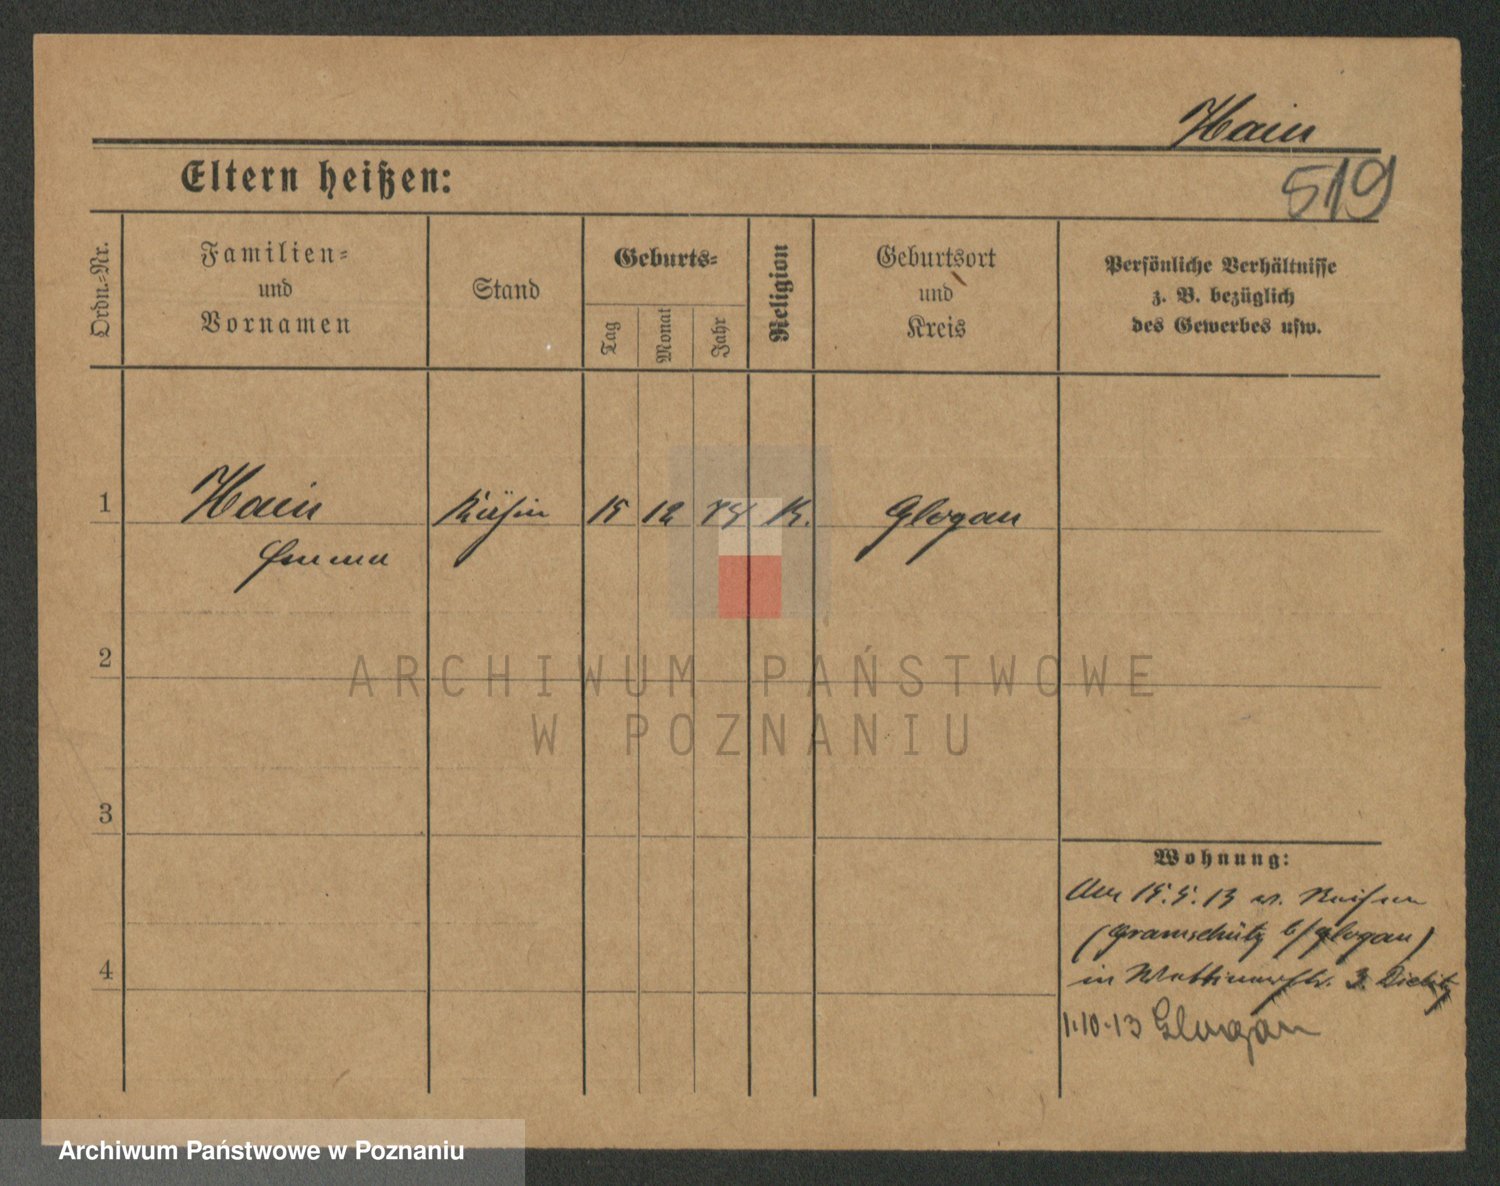 Hain
519
Eltern heißen:
Ordn.-Nr.
Familien-
und
Vornamen
Stand
Geburts-
Tag
Monat
Jahr
Religion
Geburtsort
und
Kreis
Persönliche Verhältnisse
z. B. bezüglich
des Gewerbes usw.
1
Hain
Emma
15 12 K.
Glogau
2
ARCHIWUM PAŃSTWOWE
W POZNANIU
3
4
Wohnung:
15.5.13 v.
(Gramschütz b/Glogau)
in 3. Dielitz
1.10.13 Glogau
Archiwum Państwowe w Poznaniu